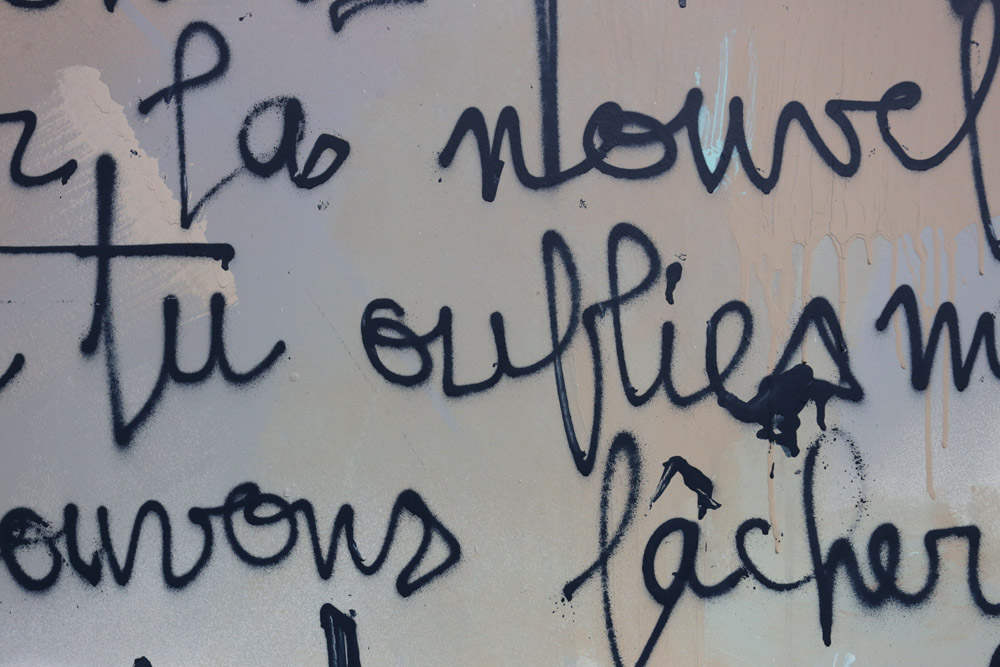 r las nouvel
tu oublies m
ouvons fâcher